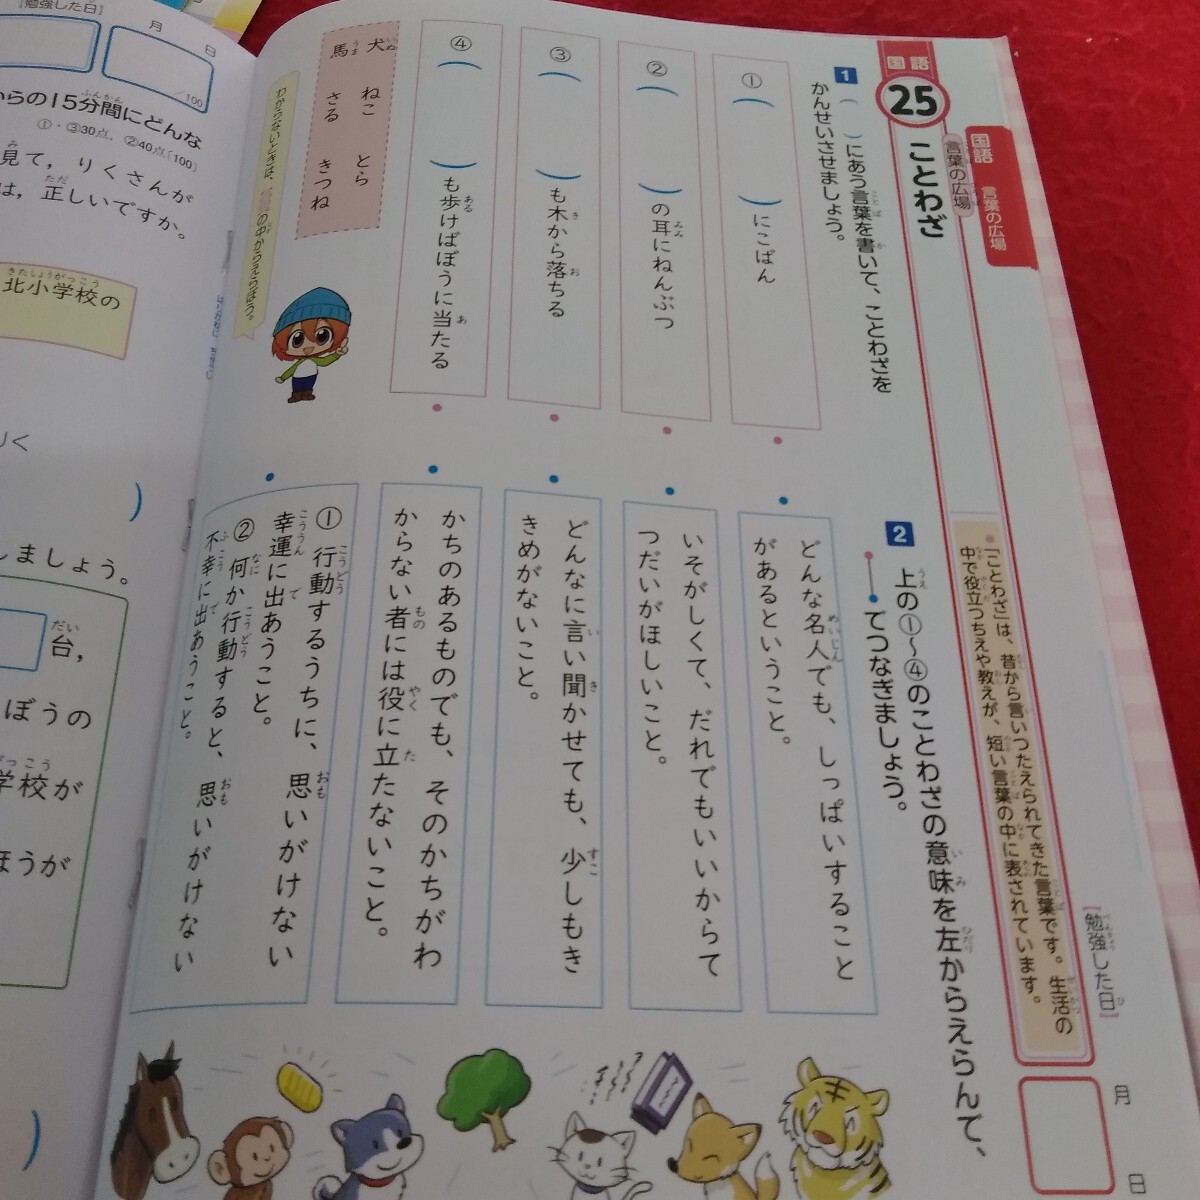 国語
25
ことわざ
言葉の広場
国語 言葉の広場
「ことわざ」は、昔から言いつたえられてきた言葉です。生活の
中で役立つちえや教えが、短い言葉の中に表されています。
[勉強した日]
月 日
1 ( )にあう言葉を書いて、ことわざを
かんせいさせましょう。
① ( )にこばん
② ( )の耳にねんぶつ
③ ( )も木から落ちる
④ ( )も歩けばぼうに当たる
犬 ねこ とら
馬 さる きつね
わからないときは、
の中からえらぼう。
2 上の①~④のことわざの意味を左からえらんで、
てつなぎましょう。
どんな名人でも、しっぱいすること
があるということ。
いそがしくて、だれでもいいからて
つだいがほしいこと。
どんなに言い聞かせても、少しもきき
きめがないこと。
かちのあるものでも、そのかちがわ
からない者には役に立たないこと。
① 行動するうちに、思いがけない
幸運に出あうこと。
② 何か行動すると、思いがけない
不幸に出あうこと。
[勉強した日]
月 日
/100
からの15分間にどんな
①・③30点、②40点〔100〕
見て，りくさんが
は，正しいですか。
北小学校の
りく
しましょう。
台，
ぼうの
学校が
ほうが